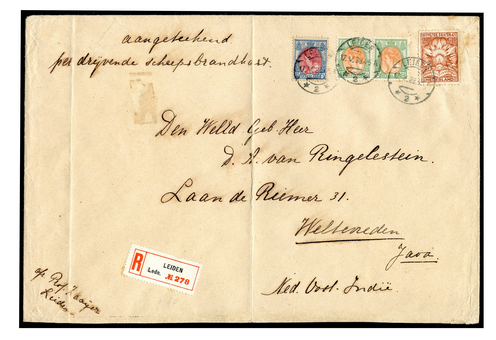 aangeteekend
per drijvende scheepsbrandkast.
LEIDEN
Den WelEd Geb. Heer
D. A. van Ringelestein.
Laan de Riemer 31.
Weltevreden
Java.
Ned. Oost. Indië.
R
LEIDEN
Leds.
278
Prof.
Leiden